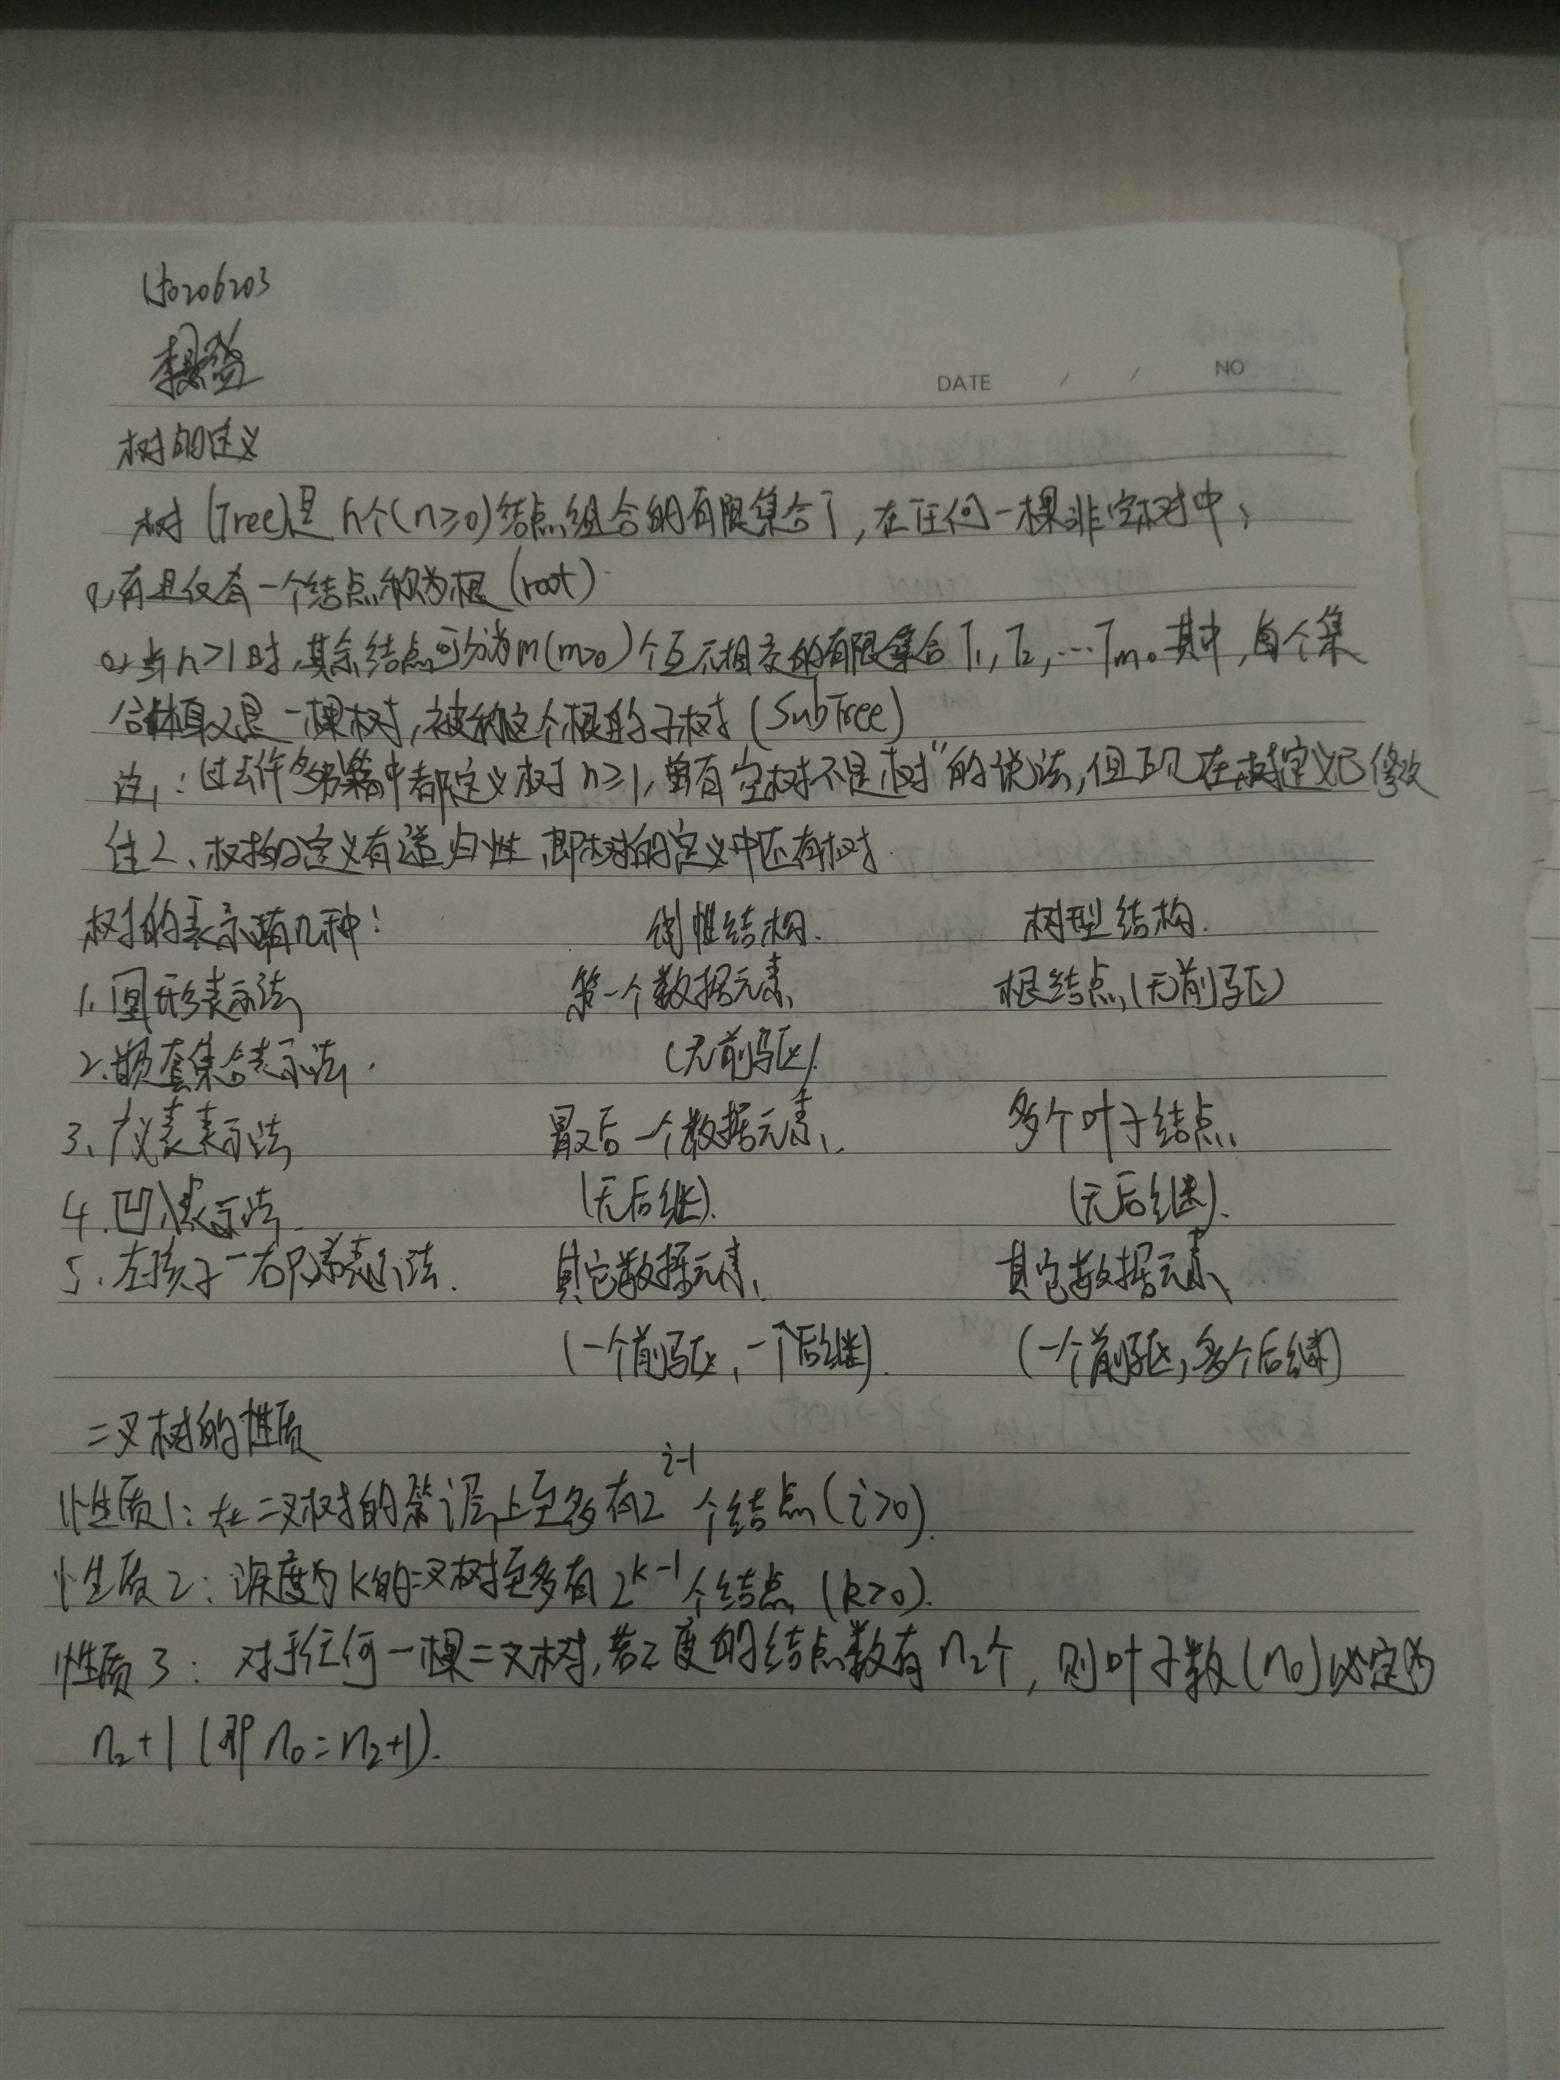 150206203
DATE / / NO
树的定义
树(Tree)是n个(n≥0)结点组合的有限集合T,在任何一棵非空树中:
①有且仅有一个结点称为根(root)
②当n>1时,其余结点可分为m(m>0)个互不相交的有限集合T1,T2,…Tm。其中,每个集
合本身又是一棵树,被称这个根的子树(SubTree)
注1:过去许多书籍中都定义树n≥1,曾有"空树不是树"的说法,但现在树定义已修改
注2、树的定义有递归性,即树的定义中还有树.
树的表示法有几种: 线性结构. 树型结构.
1.图形表示法 第一个数据元素 根结点(无前驱)
2.嵌套集合表示法. (无前驱).
3、广义表表示法 最后一个数据元素 多个叶子结点
4.凹入表示法. (无后继). (无后继).
5.左孩子一右兄弟表示法. 其它数据元素 其它数据元素
(一个前驱,一个后继). (一个前驱,多个后继)
二叉树的性质
性质1:在二叉树的第i层上至多有2^{i-1}个结点(i>0).
性质2:深度为k的二叉树至多有2^{k-1}个结点(k>0).
性质3:对于任何一棵二叉树,若2度的结点数有n2个,则叶子数(n0)必定为
n2+1(即n0=n2+1).